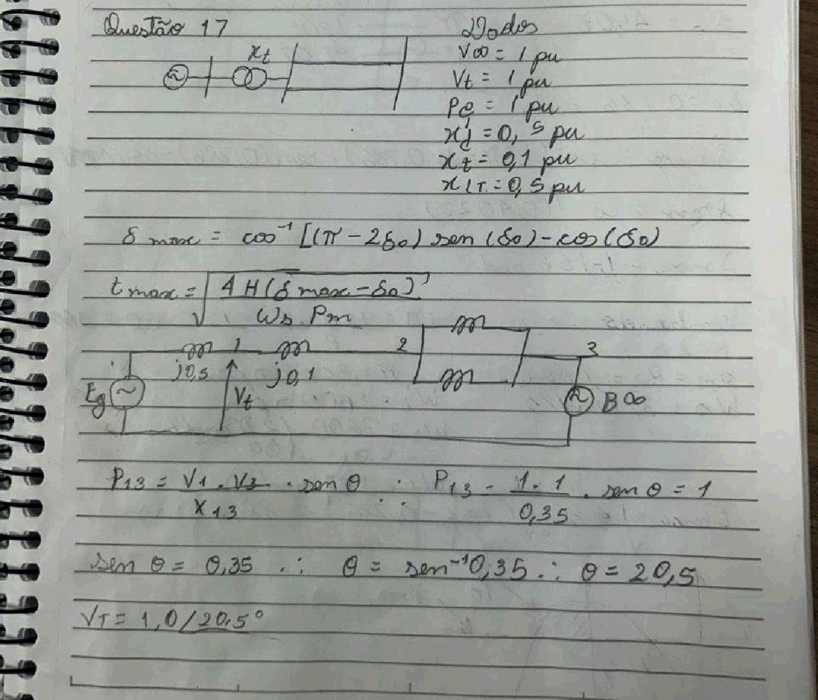 Questão 17
xt
Dados
V∞ = 1 pu
Vt = 1 pu
Pe = 1 pu
x'd = 0,5 pu
xt = 0,1 pu
xLT = 0,5 pu
δ max = cos⁻¹ [(π - 2δ0) sen (δ0) - cos (δ0)
t max = √ 4 H (δ max - δ0)
Ws Pm
1 2 3
j0,5 j0,1
Eg Vt B∞
P13 = V1 . V3 . sen θ ∴ P13 - 1 . 1 . sen θ = 1
X13 0,35
sen θ = 0,35 ∴ θ = sen⁻¹ 0,35 ∴ θ = 20,5
VT = 1,0 /20.5°